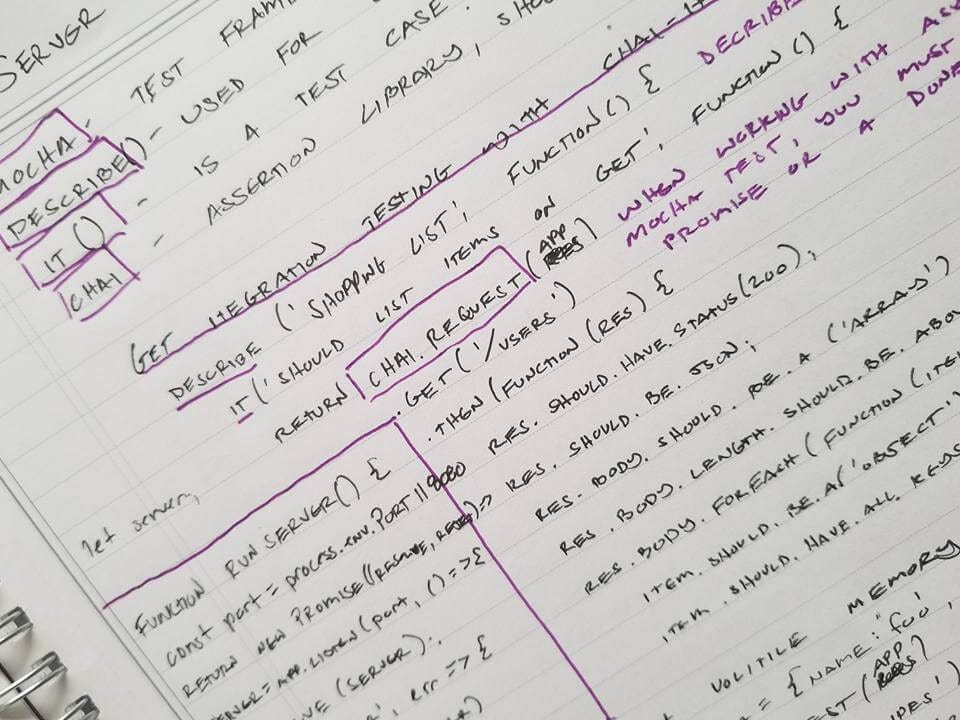 SERVER
MOCHA - TEST
DESCRIBE() - USED FOR
IT () - IS A TEST CASE.
CHAI - ASSERTION LIBRARY,
GET ITEGRATION TESTING WITH CHAI-
DESCRIBE ('SHOPPING LIST', FUNCTION() {
IT ('SHOULD LIST ITEMS ON GET', FUNCTION() {
RETURN CHAI.REQUEST (APP)
.GET('/USERS')
.THEN (FUNCTION (RES) {
RES. SHOULD. HAVE. STATUS(200);
RES. SHOULD. BE. JSON;
RES. BODY. SHOULD. BE. A ('ARRAY')
RES. BODY. LENGTH. SHOULD. BE.
RES. BODY. FOREACH (FUNCTION
ITEM. SHOULD. BE. A('OBJECT')
ITEM. SHOULD. HAVE. ALL. KEYS
DECRIBE
WHEN WORKING WITH
MOCHA TEST, YOU MUST
PROMISE OR A DONE
let server;
FUNCTION RUN SERVER() {
const port = process.env.PORT || 8080
RETURN NEW PROMISE((RESOLVE, =>
APP.LISTEN (port, () => {
(SERVER);
err => {
VOLITILE MEMORY
= {NAME: 'foo',
APP